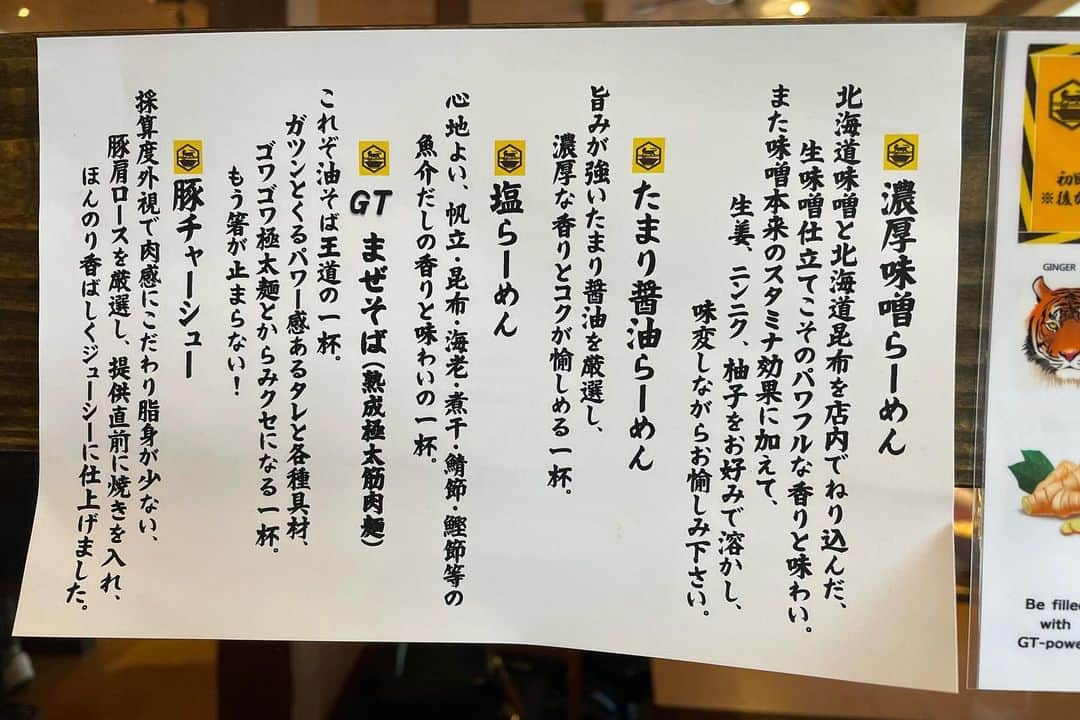 濃厚味噌らーめん
北海道味噌と北海道昆布を店内でねり込んだ、
生味噌仕立てこそのパワフルな香りと味わい。
また味噌本来のスタミナ効果に加えて、
生姜、ニンニク、柚子をお好みで溶かし、
味変しながらお愉しみ下さい。
たまり醤油らーめん
旨みが強いたまり醤油を厳選し、
濃厚な香りとコクが愉しめる一杯。
塩らーめん
心地よい、帆立・昆布・海老・煮干・鯖節・鰹節等の
魚介だしの香りと味わいの一杯。
GT まぜそば（熟成極太筋肉麺）
これぞ油そば王道の一杯。
ガツンとくるパワー感あるタレと各種具材、
ゴワゴワ極太麺とからみクセになる一杯。
もう箸が止まらない！
豚チャーシュー
採算度外視で肉感にこだわり脂身が少ない、
豚肩ロースを厳選し、提供直前に焼きを入れ、
ほんのり香ばしくジューシーに仕上げました。
初
※後
GINGER
Be filled
with
GT-powe